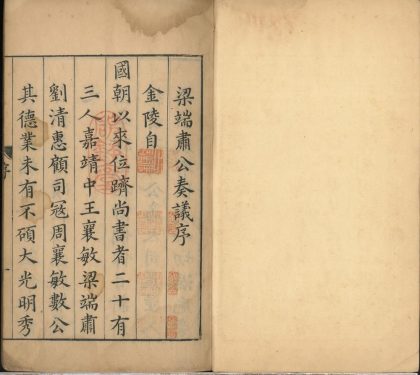 梁端肅公奏議序
金陵自
國朝以來位躋尚書者二十有
三人嘉靖中王襄敏梁端肅
劉清惠顧司寇周襄敏數公
其德業未有不碩大光明秀